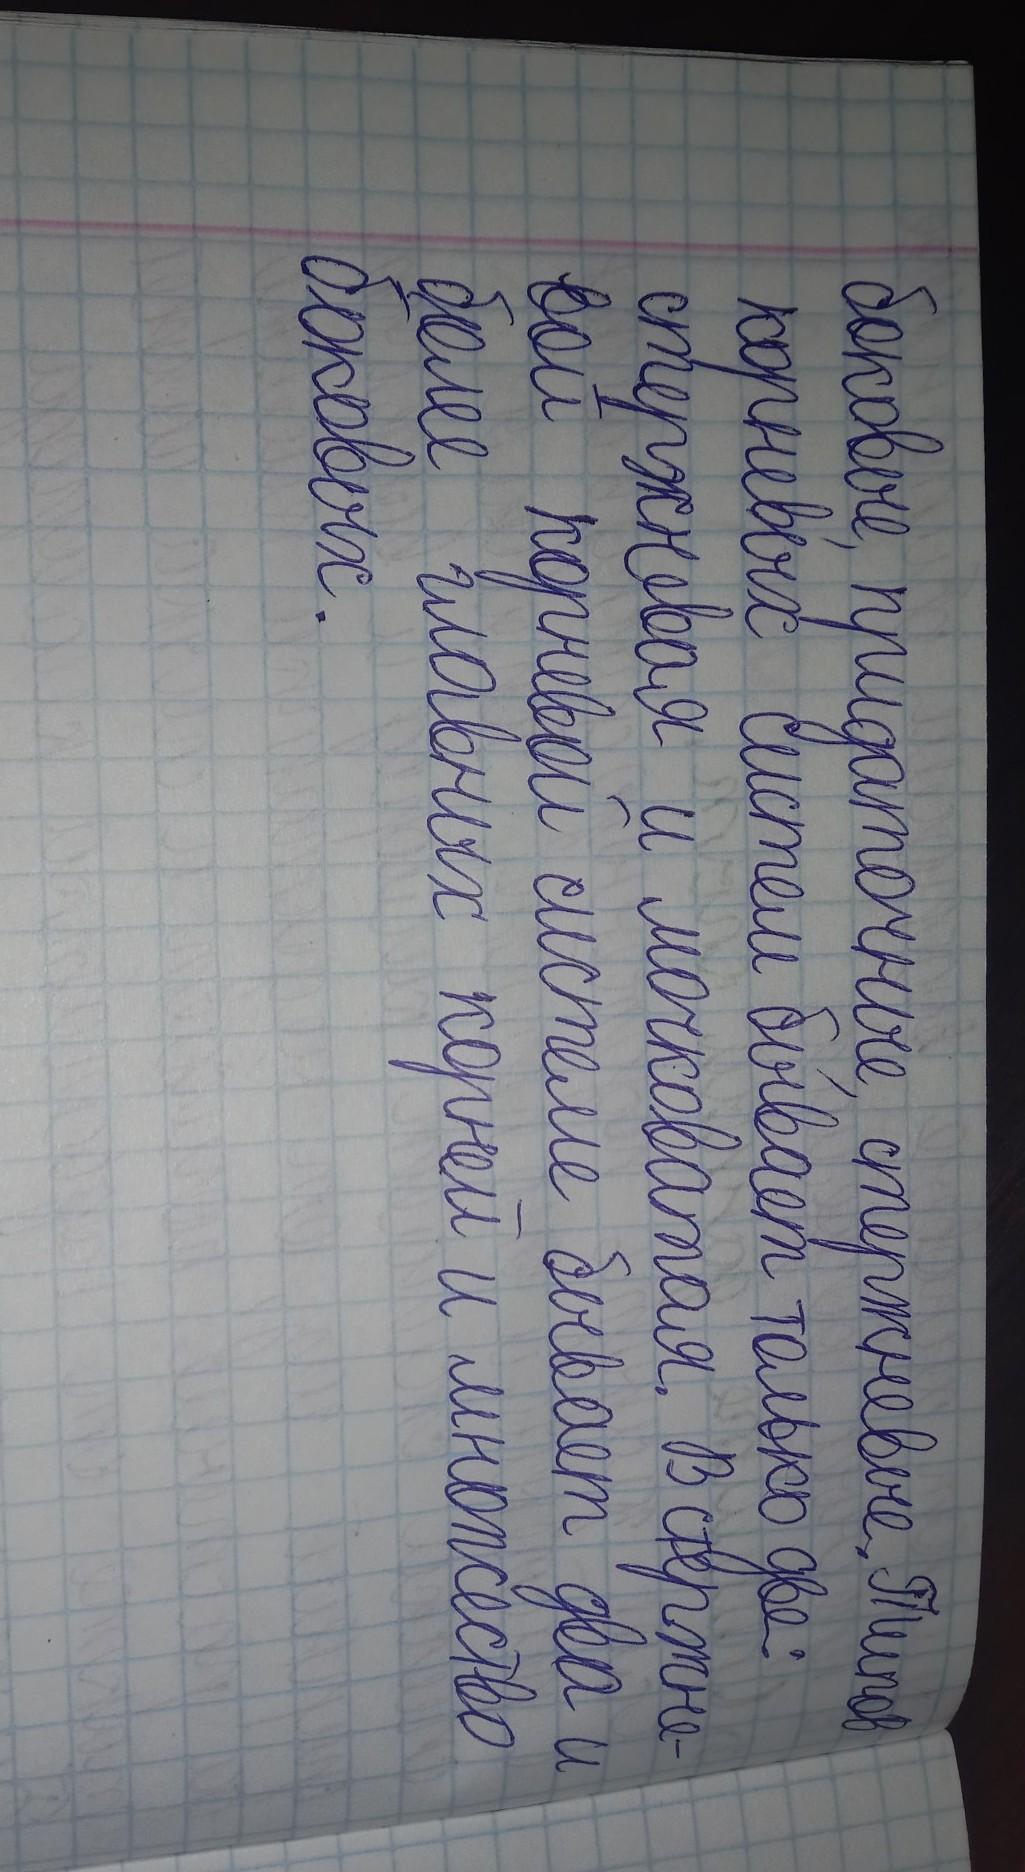 боковые, придаточные, стержневые. Типов
корневых систем бывает только две:
стержновая и мочковатая. В стержне-
вой корневой системе бывает два и
более главных корней и множество
боковых.